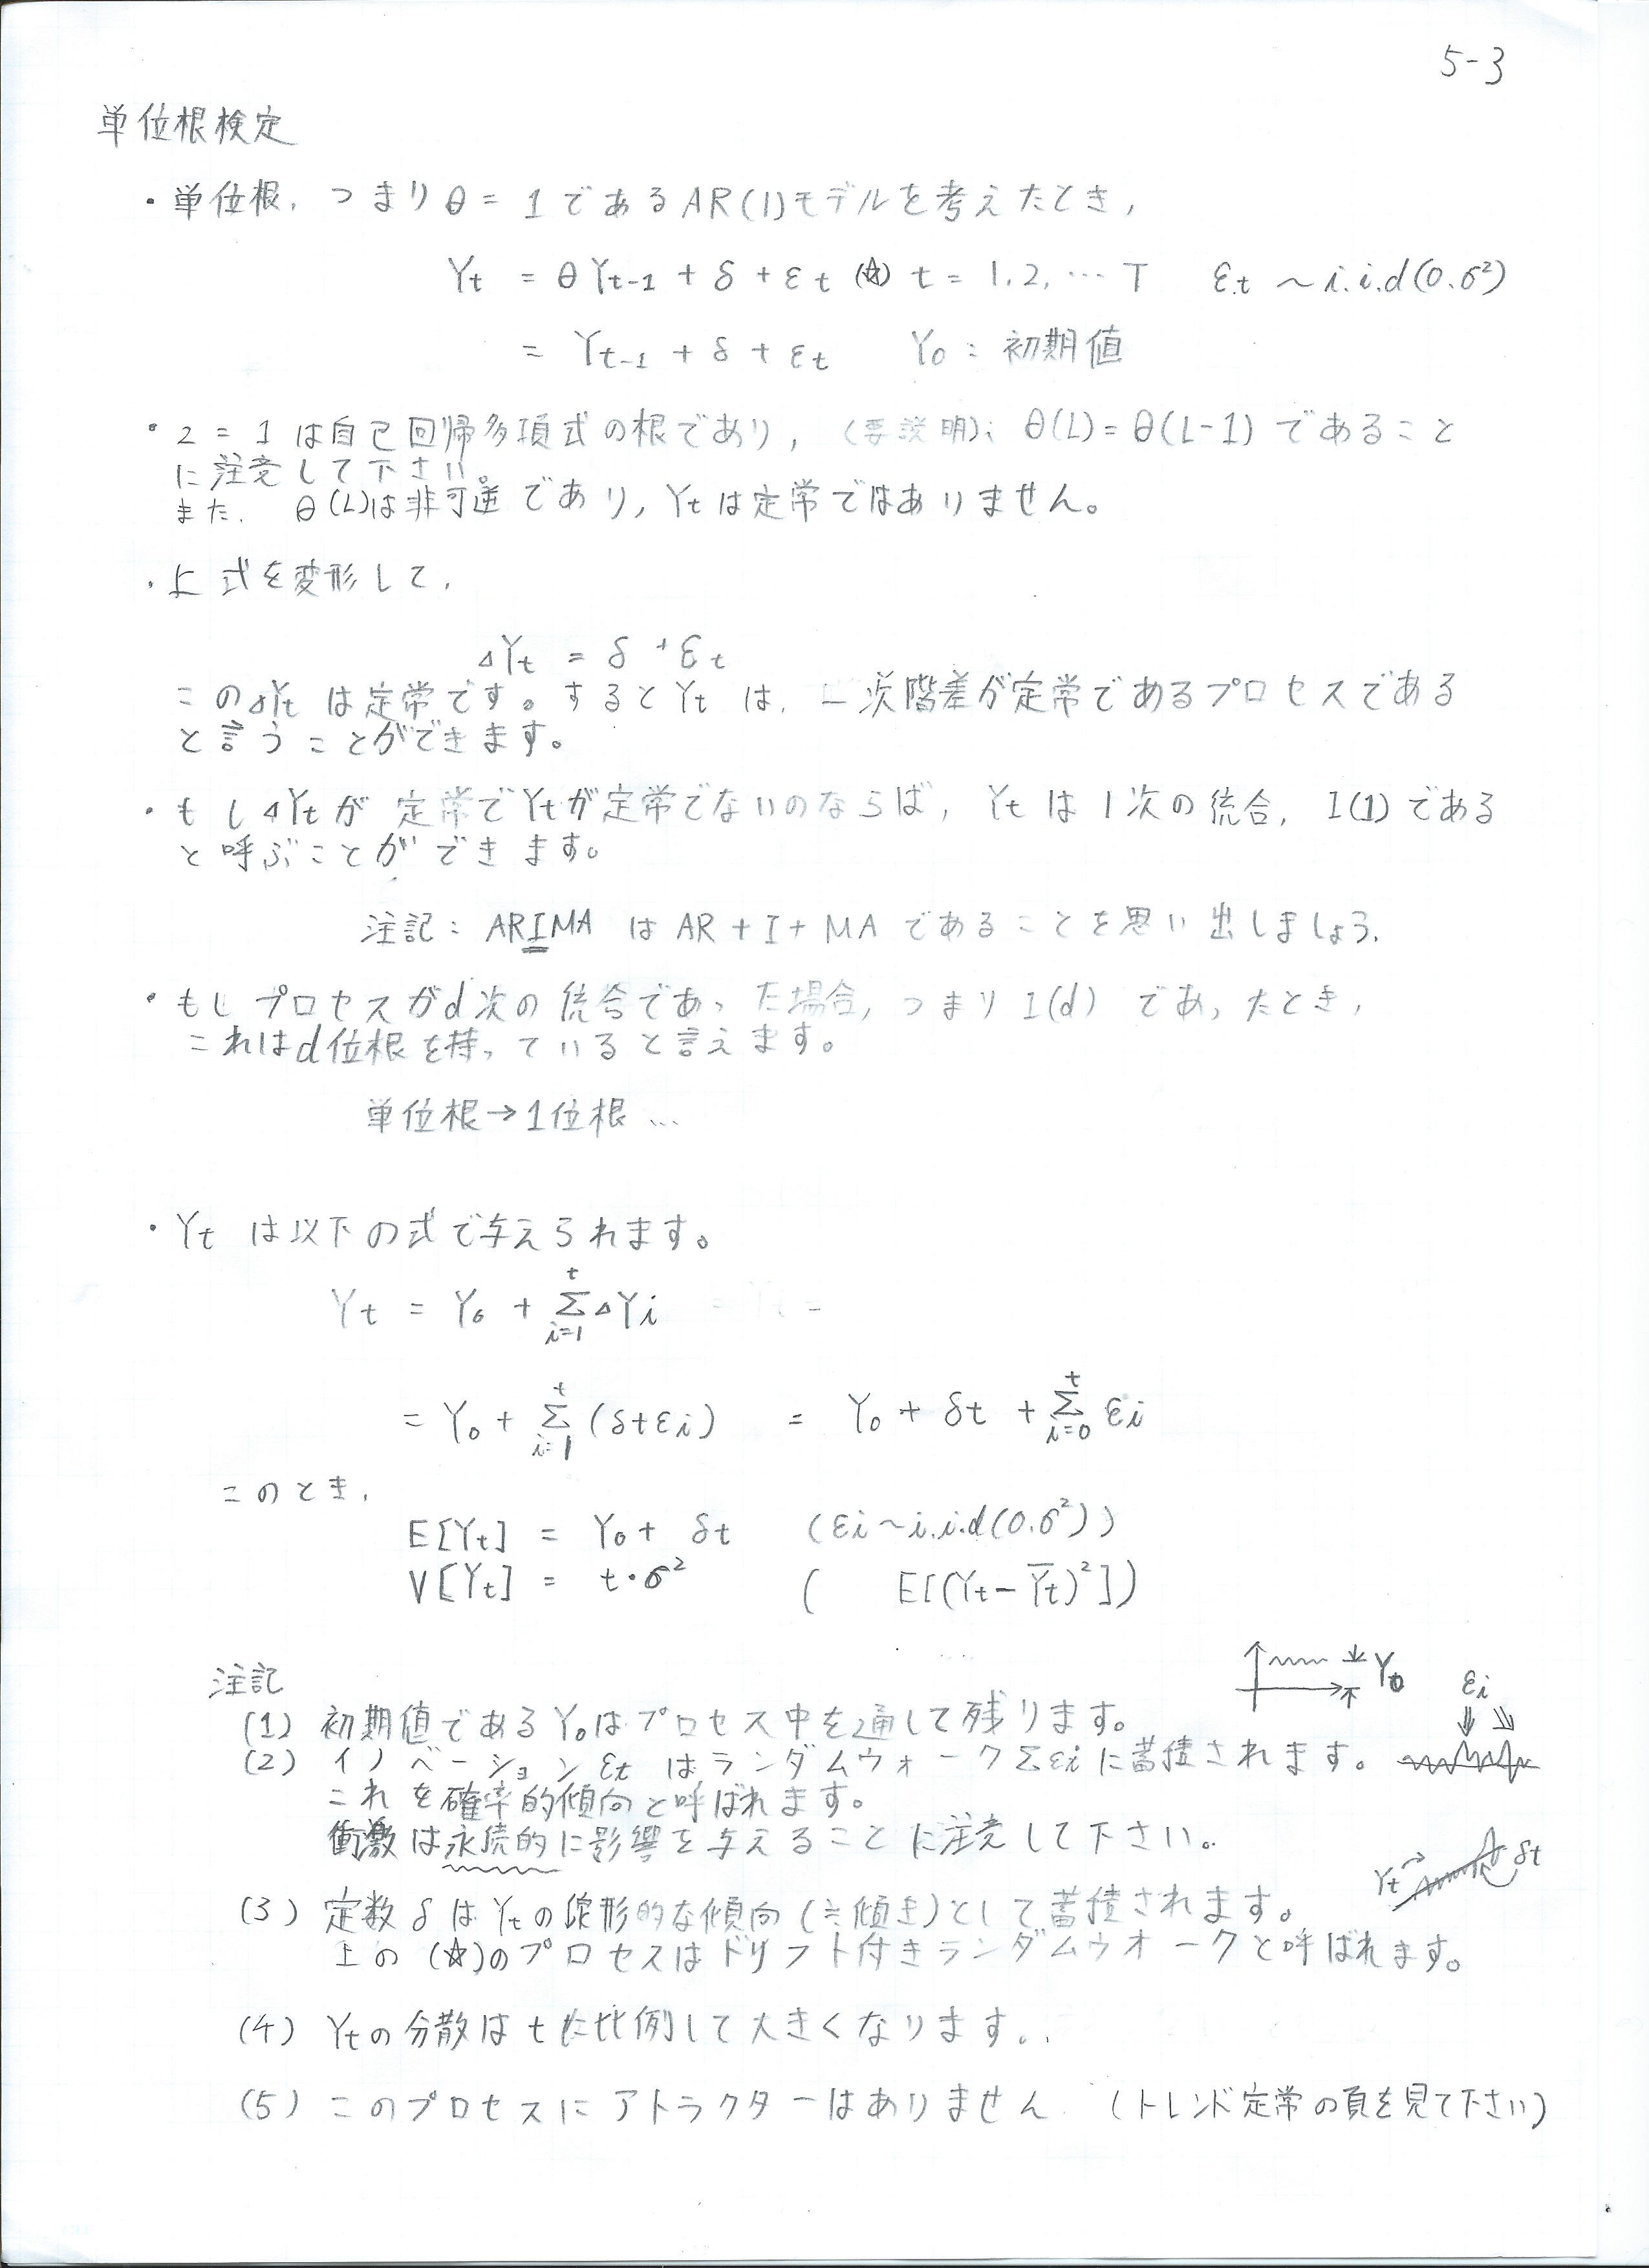 5-3
単位根検定
・単位根、つまりθ = 1であるAR(1)モデルを考えたとき,
Yt = θYt-1 + δ + εt (☆) t = 1, 2, … T  εt ~ i.i.d(0.σ²)
= Yt-1 + δ + εt  Y0 : 初期値
・z = 1は自己回帰多項式の根であり, (要説明)、θ(L) = θ(L-1)であること
に注意して下さい。
また、θ(L)は非可逆であり, Ytは定常ではありません。
・上式を変形して,
ΔYt = δ + εt
このΔYtは定常です。するとYtは, 一次階差が定常であるプロセスである
と言うことができます。
・もしΔYtが定常でYtが定常でないのならば, Ytは1次の統合, I(1)である
と呼ぶことができます。
注記 : ARIMAはAR + I + MAであることを思い出しましょう.
・もしプロセスがd次の統合であった場合, つまりI(d)であったとき,
これはd位根を持っていると言えます。
単位根→1位根…
・Ytは以下の式で与えられます。
Yt = Y0 + Σ^t_{i=1} ΔYi
= Y0 + Σ^t_{i=1} (δtεi) = Y0 + δt + Σ^t_{i=0} εi
このとき,
E[Yt] = Y0 + δt  (εi ~ i.i.d(0.σ²))
V[Yt] = t・σ²  ( E[(Yt - Y̅t)²])
注記
Y0
εi
(1) 初期値であるY0はプロセス中を通して残ります。
(2) イノベーションεtはランダムウォークΣεiに蓄積されます。
これを確率的傾向と呼ばれます。
衝激は永続的に影響を与えることに注意して下さい。
Yt δt
(3) 定数δはYtの線形的な傾向(≒傾き)として蓄積されます。
上の(☆)のプロセスはドリフト付きランダムウォークと呼ばれます。
(4) Ytの分散はtに比例して大きくなります。
(5) このプロセスにアトラクターはありません (トレンド定常の頁を見て下さい)